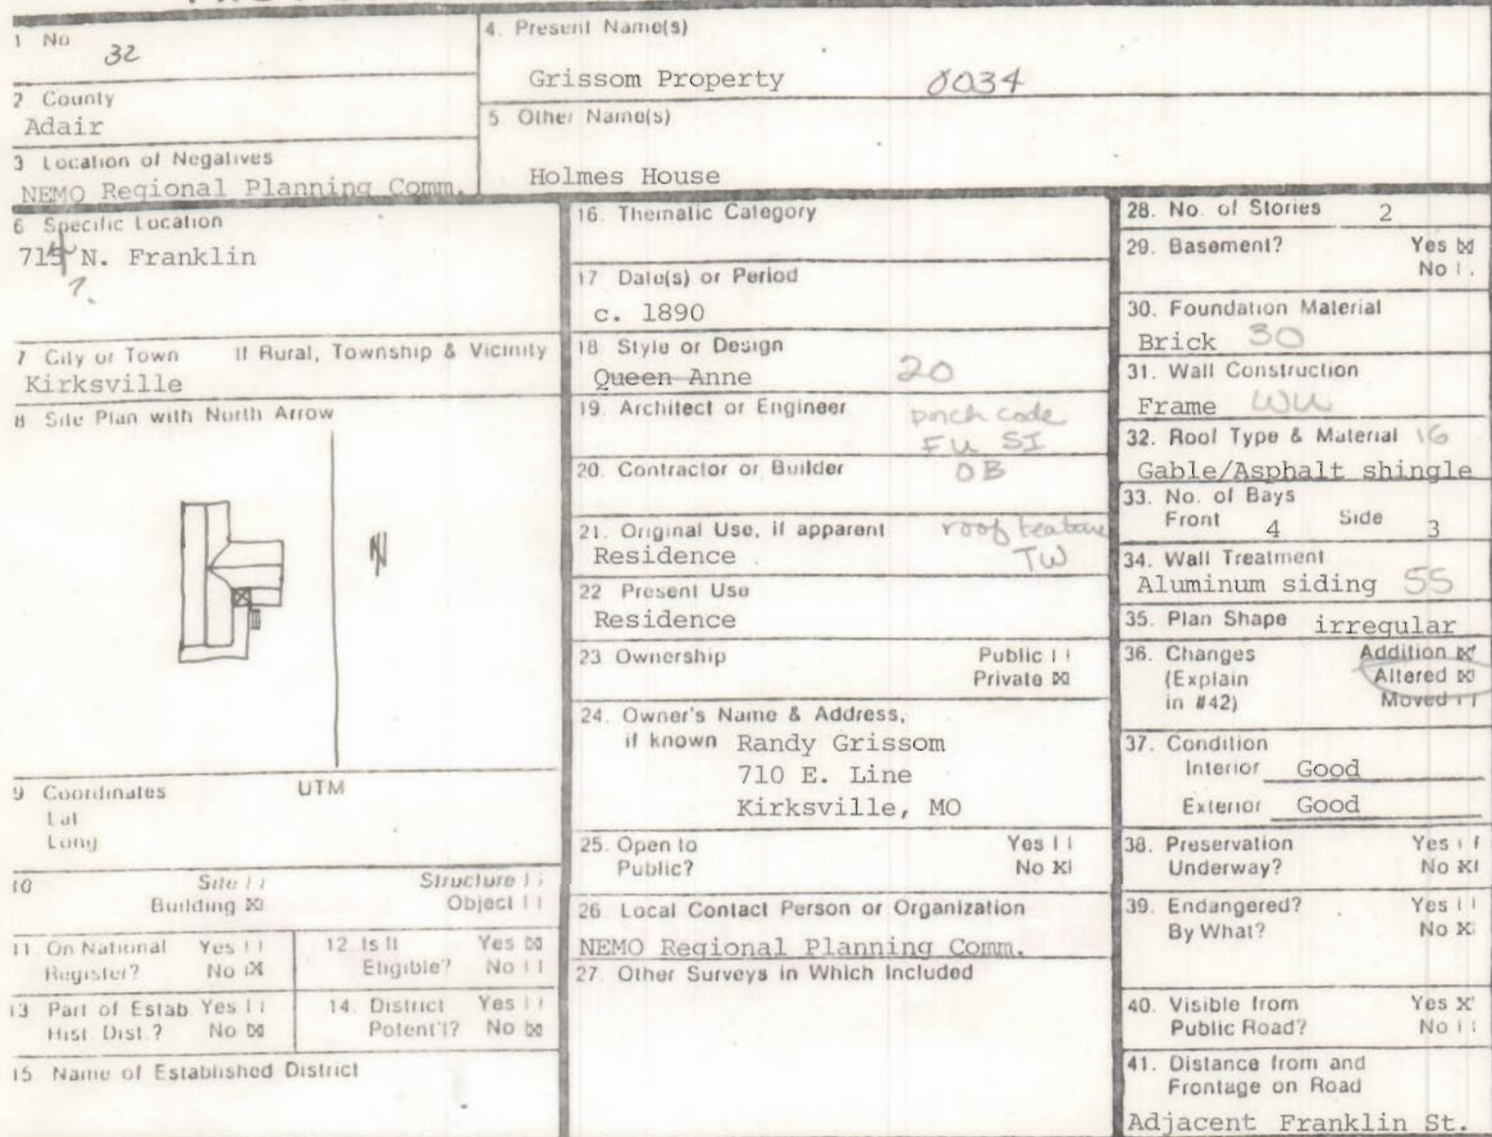 1 No
32
2 County
Adair
3 Location of Negatives
NEMO Regional Planning Comm.
4. Present Name(s)
Grissom Property 0034
5. Other Name(s)
Holmes House
6 Specific Location
N. Franklin
?.
7 City or Town If Rural, Township & Vicinity
Kirksville
8 Site Plan with North Arrow
N
9 Coordinates UTM
Lat
Long
10 Site Structure
Building Object
11 On National Yes
Register? No X
12 Is It Yes X
Eligible? No
13 Part of Estab Yes
Hist. Dist.? No X
14. District Yes
Potent'l? No X
15 Name of Established District
16. Thematic Category
17 Date(s) or Period
c. 1890
18 Style or Design
Queen Anne 20
19. Architect or Engineer
porch code
FU SI
OB
20. Contractor or Builder
21. Original Use, if apparent
Residence
roof feature
TW
22 Present Use
Residence
23 Ownership Public
Private X
24. Owner's Name & Address,
if known Randy Grissom
710 E. Line
Kirksville, MO
25. Open to Yes
Public? No X
26. Local Contact Person or Organization
NEMO Regional Planning Comm.
27. Other Surveys in Which Included
28. No. of Stories 2
29. Basement? Yes X
No
30. Foundation Material
Brick 30
31. Wall Construction
Frame WU
32. Roof Type & Material 16
Gable/Asphalt shingle
33. No. of Bays
Front 4 Side 3
34. Wall Treatment
Aluminum siding 55
35. Plan Shape irregular
36. Changes Addition X
(Explain Altered X
in #42) Moved
37. Condition
Interior Good
Exterior Good
38. Preservation Yes
Underway? No X
39. Endangered? Yes
By What? No X
40. Visible from Yes X
Public Road? No
41. Distance from and
Frontage on Road
Adjacent Franklin St.